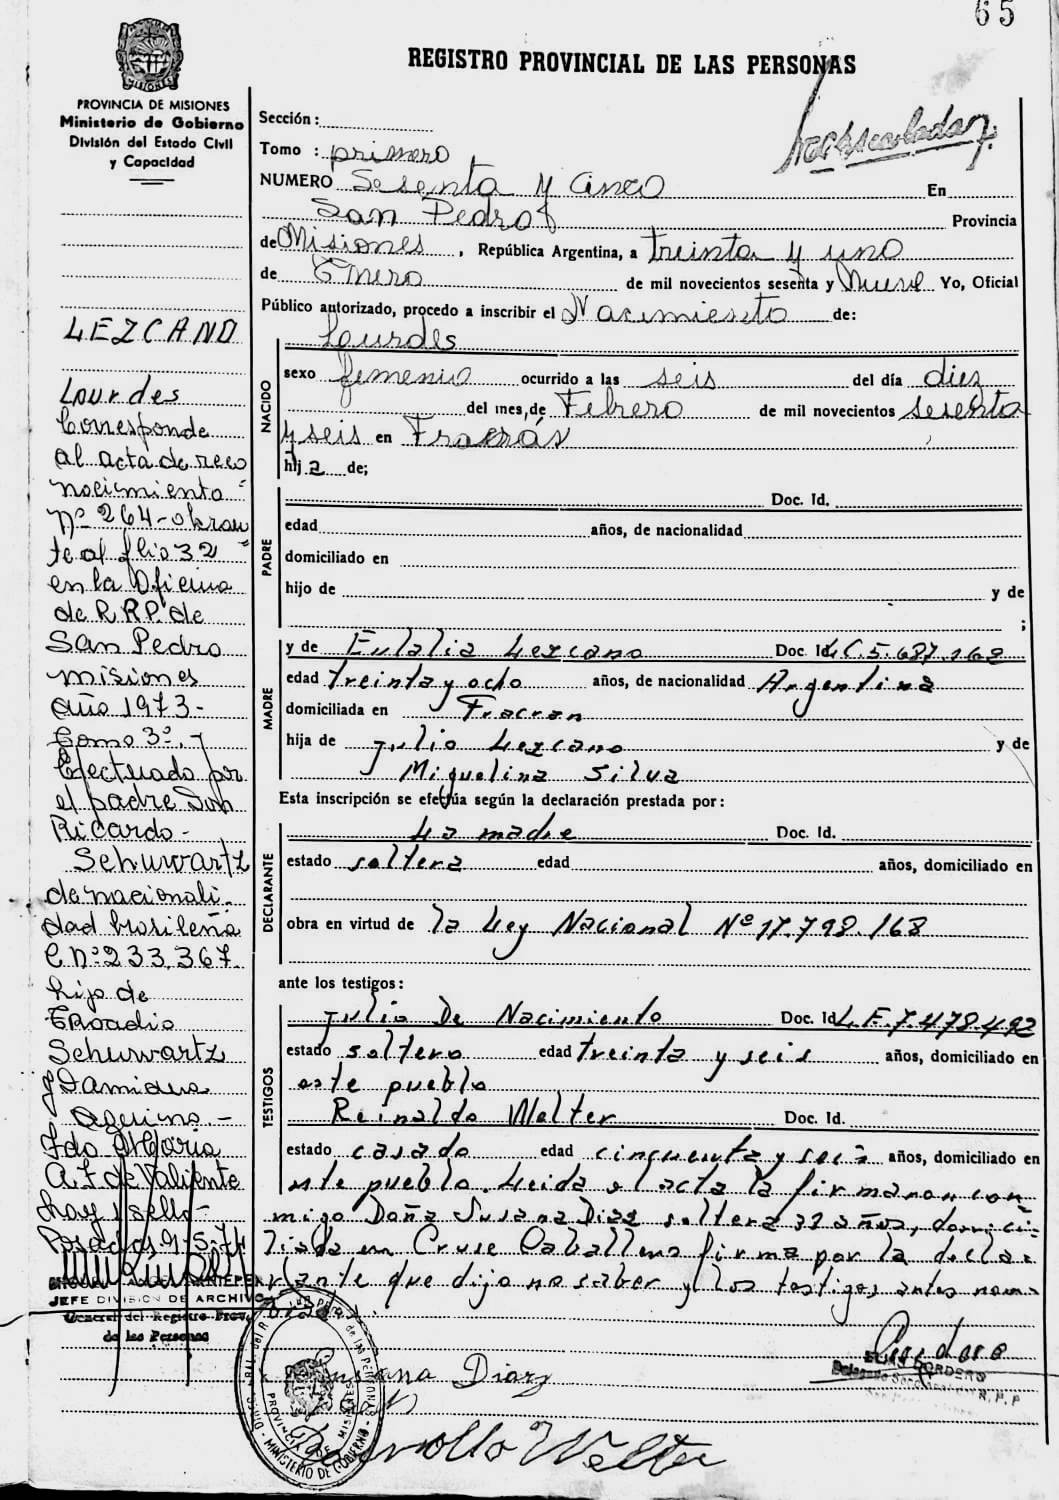 65
REGISTRO PROVINCIAL DE LAS PERSONAS
PROVINCIA DE MISIONES
Ministerio de Gobierno
División del Estado Civil
y Capacidad
Sección:
Tomo : primero
NUMERO Sesenta y Cinco En
San Pedro Provincia
de Misiones, República Argentina, a treinta y uno
de Enero de mil novecientos sesenta y Nueve Yo, Oficial
Público autorizado, procedo a inscribir el Nacimiento de:
NACIDO
Lourdes
sexo femenino ocurrido a las seis del día diez
del mes, de Febrero de mil novecientos sesenta
y seis en Fracrán
hija de;
PADRE
Doc. Id.
edad años, de nacionalidad
domiciliado en
hijo de y de
;
MADRE
y de Eulalia Lezcano Doc. Id L.C.5.687.168
edad treinta y ocho años, de nacionalidad Argentina
domiciliada en Fracran
hija de Julio Lezcano y de
Miguelina Silva
Esta inscripción se efectúa según la declaración prestada por:
DECLARANTE
La madre Doc. Id.
estado soltera edad años, domiciliado en
obra en virtud de la Ley Nacional Nº 17.798/68
ante los testigos:
TESTIGOS
Julio De Nacimiento Doc. Id L.E.7.478.492
estado soltero edad treinta y seis años, domiciliado en
este pueblo
Reinaldo Welter Doc. Id.
estado casado edad cincuenta y seis años, domiciliado en
este pueblo. Leida el acta la firmaron con
migo Doña Susana Diaz soltera 32 años, domici
liada en Cruse Caballero firma por la decla
rante que dijo no saber y los testigos antes nom
LEZCANO
Lourdes
Corresponde
al acta de reco
nocimiento
Nº 264-obran
te al flio 32
en la Oficina
de R.R.P. de
San Pedro
misiones
año 1973-
Tomo 3º.-
Efectuado por
el padre Don
Ricardo-
Schuwartz
de nacionali
dad brasileña
C. nº 233.367.
hijo de
Schuwartz
y
Aquino.-
Fdo Maria
A. F. de Valiente
hay 1 sello-
Posadas 9-5-74
JEFE DIVISION DE ARCHIVO
General del Registro Prov.
de las Personas
Susana Diaz
PROVINCIA DE MISIONES
MINISTERIO DE GOBIERNO
Welter